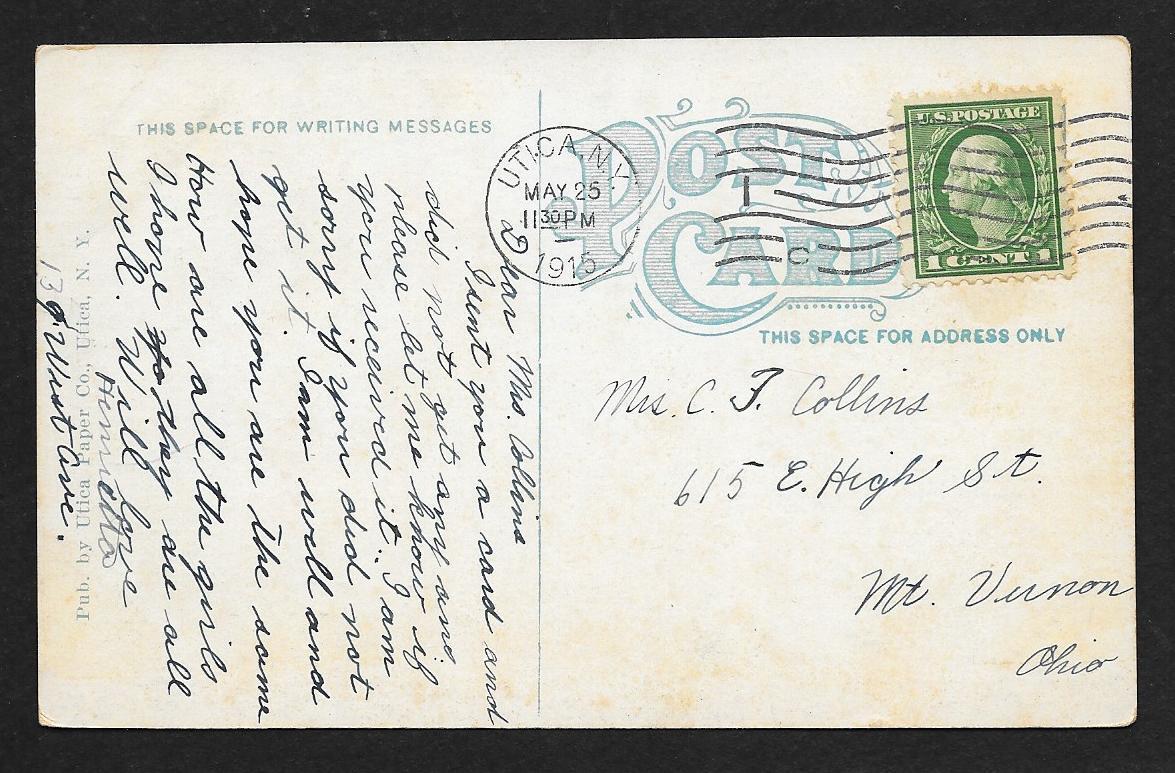 THIS SPACE FOR WRITING MESSAGES
Dear Mrs. Collins
I sent you a card and
did not get any and
please let me know if
you received it. I am
sorry if you did not
get it. I am well and
hope you are the same
How are all the girls
I hope they are all
well. Will love
Henrietta
13 West Ave.
Pub. by Utica Paper Co., Utica, N. Y.
POST CARD
UTICA, N.Y.
MAY 25
11 30 PM
1915
1
C
U.S. POSTAGE
1 CENT 1
THIS SPACE FOR ADDRESS ONLY
Mrs. C. F. Collins
615 E. High St.
Mt. Vernon
Ohio